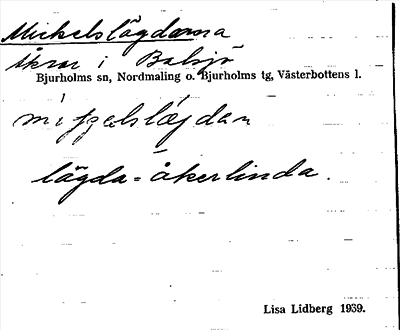 Mickelslägdorna
åkrar i Balsjö
Bjurholms sn, Nordmaling o. Bjurholms tg, Västerbottens l.
lägda = åkerlinda.
Lisa Lidberg 1939.